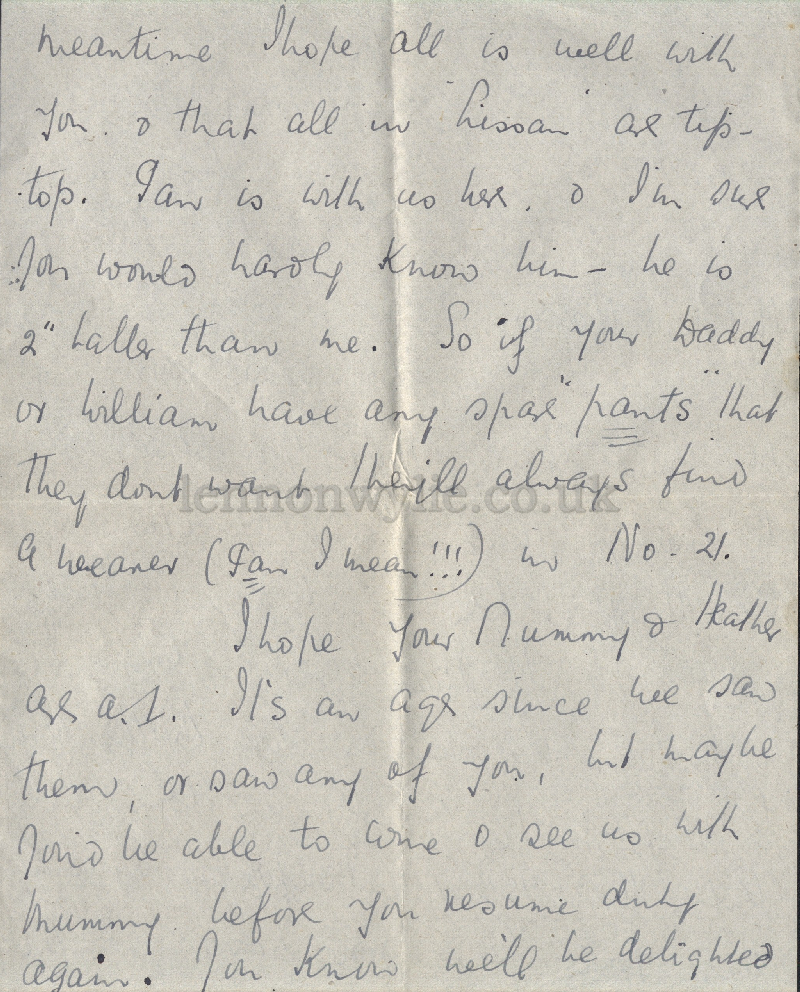 meantime I hope all is well with
you. & that all in "Lissan" are tip-
top. Ian is with us here. & I'm sure
you would hardly know him – he is
2" taller than me. So if your Daddy
or William have any spare "pants" that
they dont want they'll always find
lennonwylie.co.uk
a wearer (Ian I mean!!!) in No. 21.
I hope your Mummy & Heather
are a.1. It's an age since we saw
them, or saw any of you, but maybe
you'd be able to come & see us with
Mummy before you resume duty
again. You know we'll be delighted